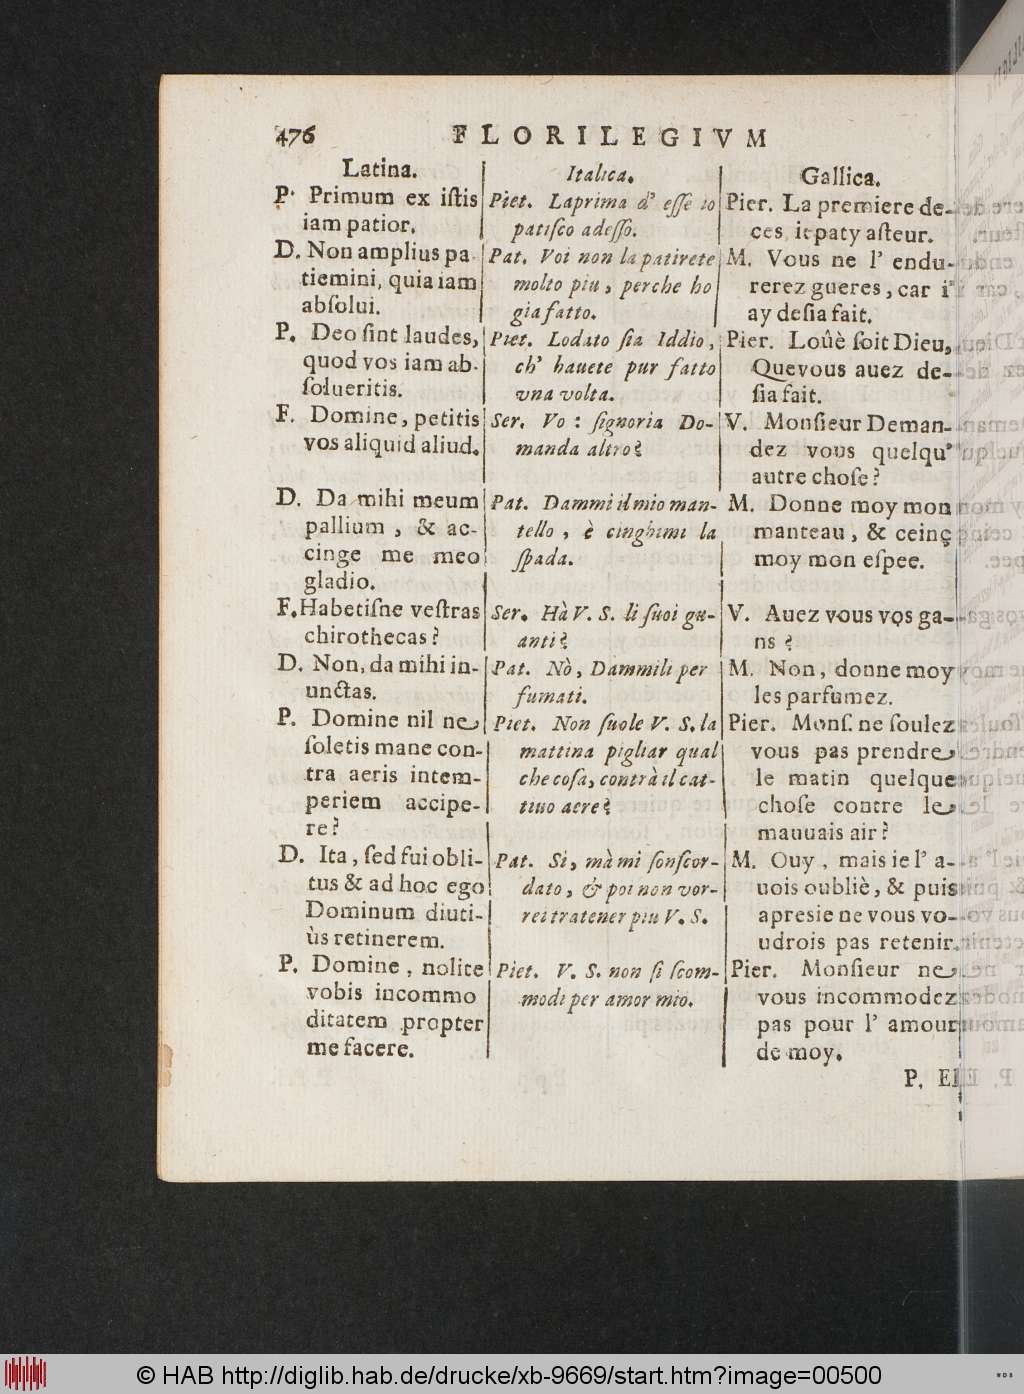 476 FLORILEGIVM
Latina.
P. Primum ex iſtis
iam patior.
D. Non amplius pa
tiemini, quia iam
abſolui.
P. Deo ſint laudes,
quod vos iam ab-
ſolueritis.
F. Domine, petitis
vos aliquid aliud.
D. Da mihi meum
pallium, & ac-
cinge me meo
gladio.
F. Habetiſne veſtras
chirothecas?
D. Non, da mihi in-
unctas.
P. Domine nil ne
ſoletis mane con-
tra aeris intem-
periem accipe-
re?
D. Ita, ſed fui obli-
tus & ad hoc ego
Dominum diuti-
ùs retinerem.
P. Domine, nolite
vobis incommo
ditatem propter
me facere.
Italica.
Piet. Laprima d' eſſe io
patiſco adeſſo.
Pat. Voi non la patirete
molto piu, perche ho
gia fatto.
Piet. Lodato ſia Iddio,
ch' hauete pur fatto
vna volta.
Ser. Vo: ſignoria Do-
manda altro?
Pat. Dammi il mio man-
tello, è cinghimi la
ſpada.
Ser. Hà V. S. li ſuoi gu-
anti?
Pat. Nò, Dammili per
fumati.
Piet. Non ſuole V. S. la
mattina pigliar qual
che coſa, contrà il cat-
tiuo aere?
Pat. Si, mà mi ſonſcor-
dato, & poi non vor-
rei tratener piu V. S.
Piet. V. S. non ſi ſcom-
modi per amor mio.
Gallica.
Pier. La premiere de-
ces, ie paty aſteur.
M. Vous ne l' endu-
rerez gueres, car i'
ay deſia fait.
Pier. Loûè ſoit Dieu,
Que vous auez de-
ſia fait.
V. Monſieur Deman-
dez vous quelqu'
autre choſe?
M. Donne moy mon
manteau, & ceinç
moy mon eſpee.
V. Auez vous vos ga-
ns?
M. Non, donne moy
les parfumez.
Pier. Monſ. ne ſoulez
vous pas prendre
le matin quelque
choſe contre le
mauuais air?
M. Ouy, mais ie l' a-
uois oubliè, & puis
apres ie ne vous vo-
udrois pas retenir.
Pier. Monſieur ne
vous incommodez
pas pour l' amour
de moy.
© HAB http://diglib.hab.de/drucke/xb-9669/start.htm?image=00500